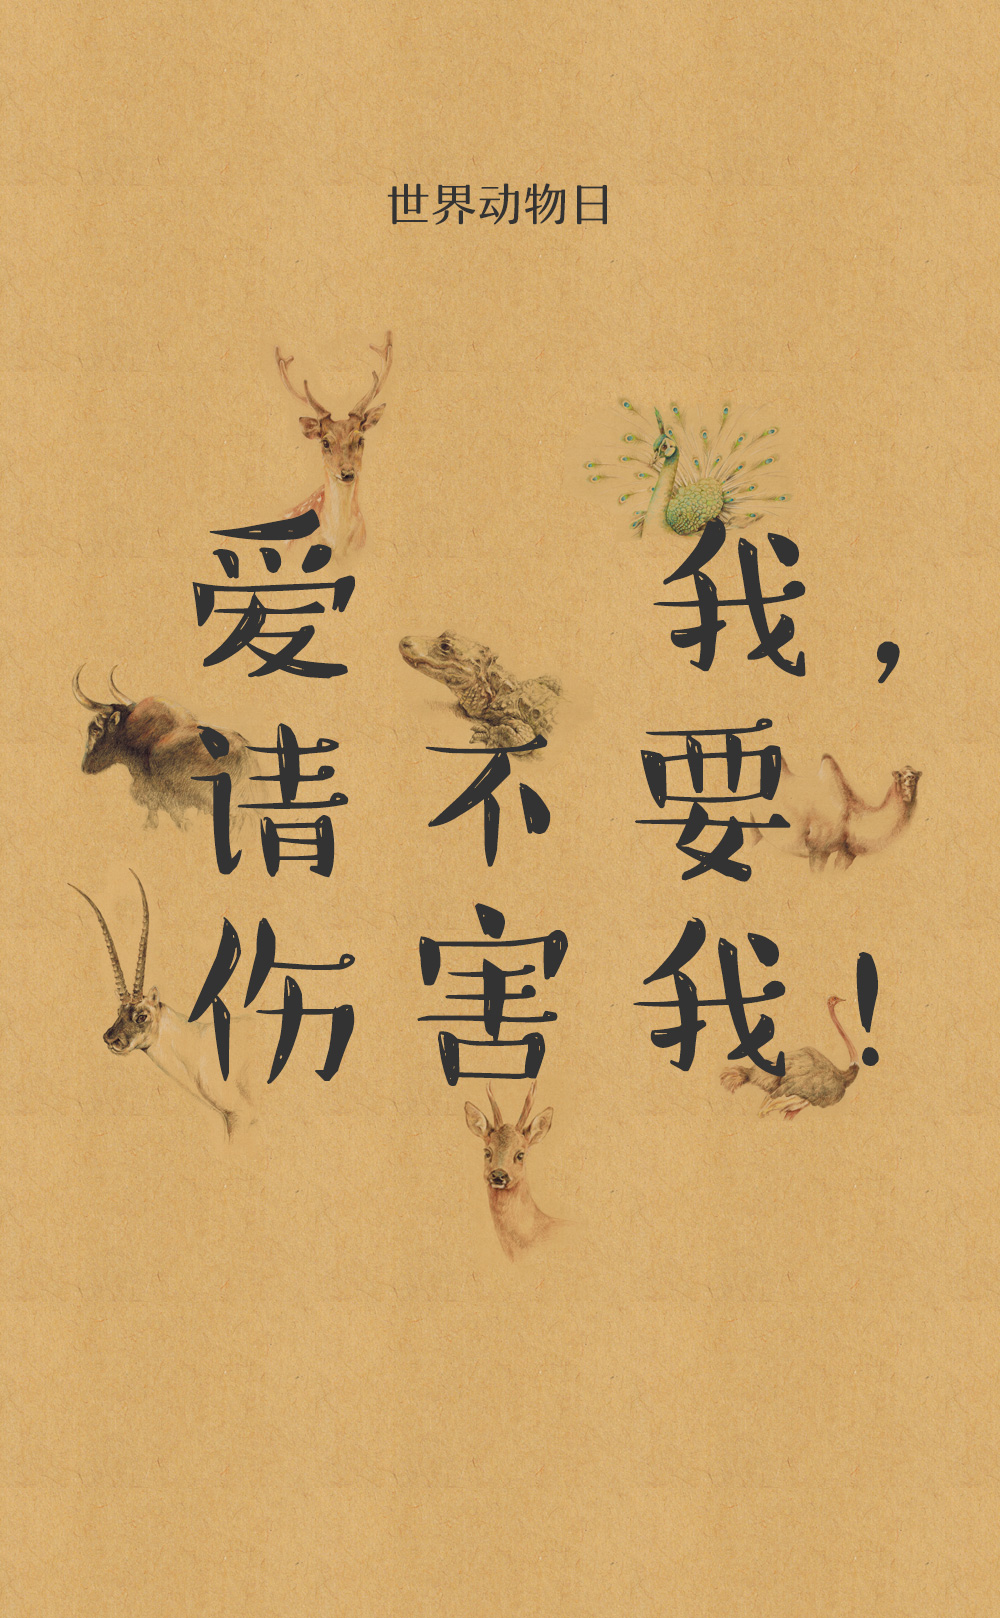 世界动物日
爱 我，
请不要
伤害我！